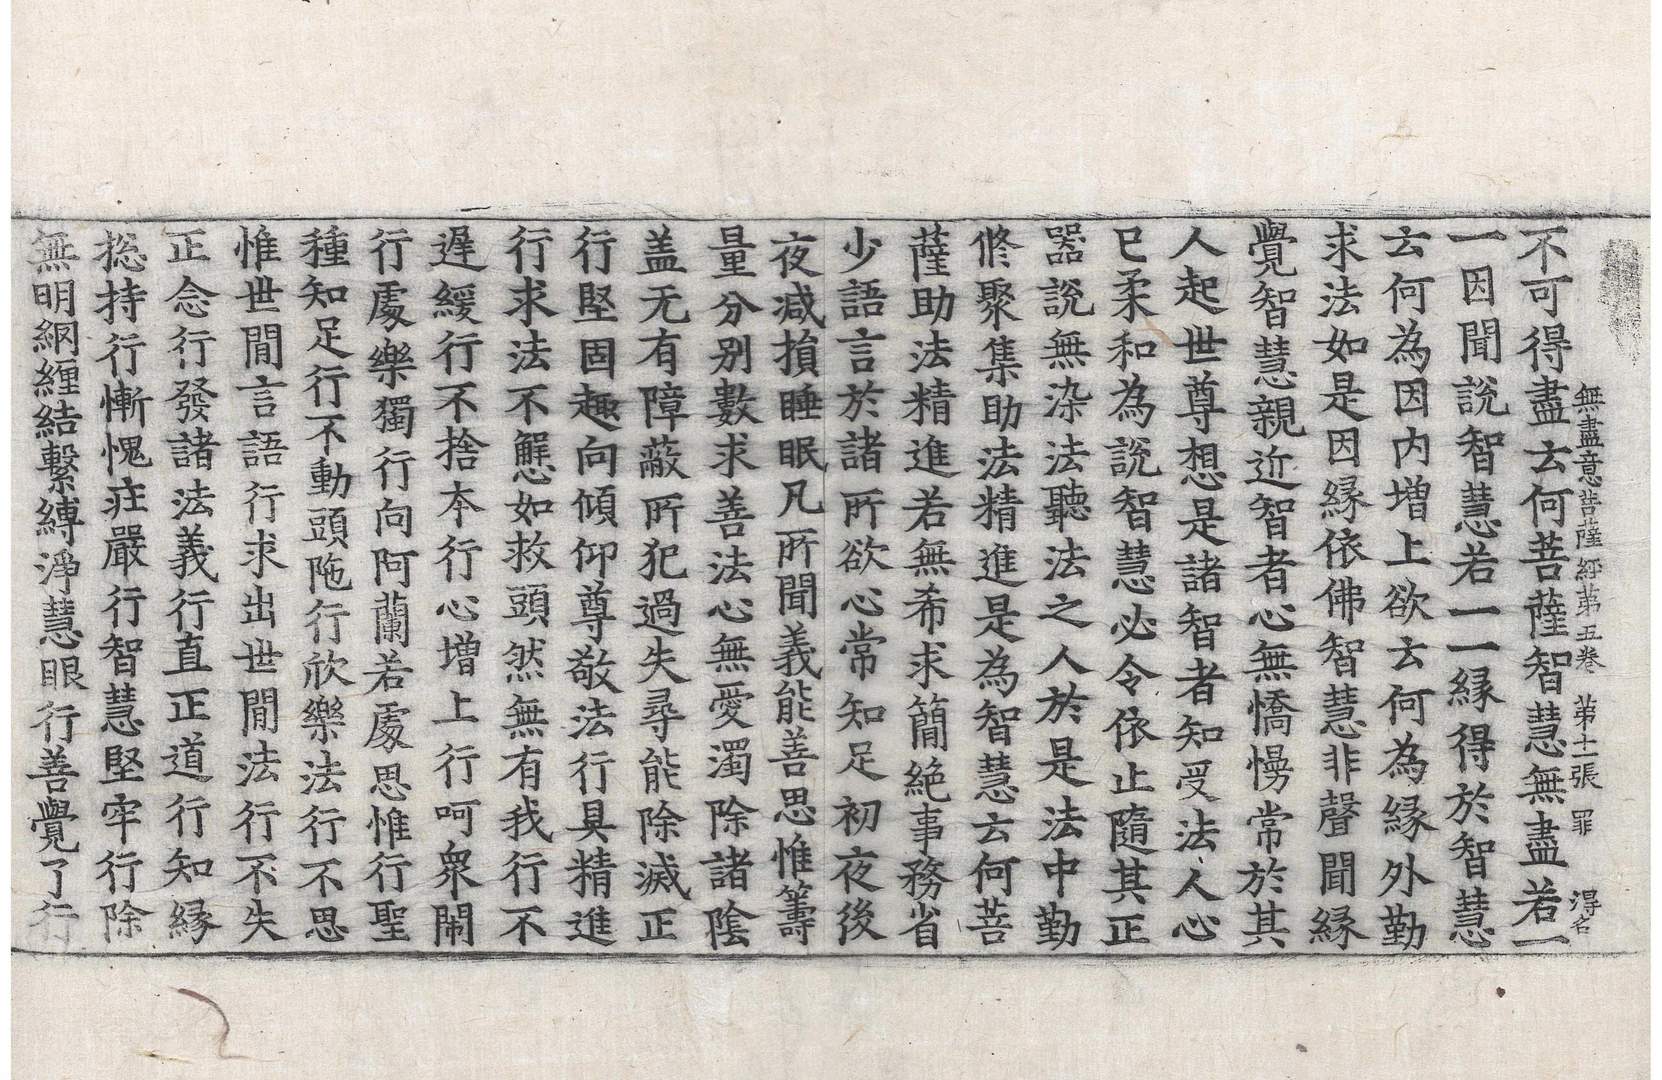 無盡意菩薩經第五卷 第十一張 罪 得名
不可得盡云何菩薩智慧無盡若一
一因聞說智慧若一一緣得於智慧
云何為因內增上欲云何為緣外勤
求法如是因緣依佛智慧非聲聞緣
覺智慧親近智者心無憍慢常於其
人起世尊想是諸智者知受法人心
已柔和為說智慧必令依止隨其正
器說無染法聽法之人於是法中勤
脩聚集助法精進是為智慧云何菩
薩助法精進若無希求簡絕事務省
少語言於諸所欲心常知足初夜後
夜減損睡眠凡所聞義能善思惟籌
量分別數求善法心無愛濁除諸陰
盖无有障蔽所犯過失尋能除滅正
行堅固趣向傾仰尊敬法行具精進
行求法不懈如救頭然無有我行不
遲緩行不捨本行心增上行呵衆閙
行處樂獨行向阿蘭若處思惟行聖
種知足行不動頭陁行欣樂法行不思
惟世間言語行求出世間法行不失
正念行發諸法義行直正道行知緣
揔持行慚愧疘嚴行智慧堅牢行除
無明網纏結繫縛淨慧眼行善覺了行